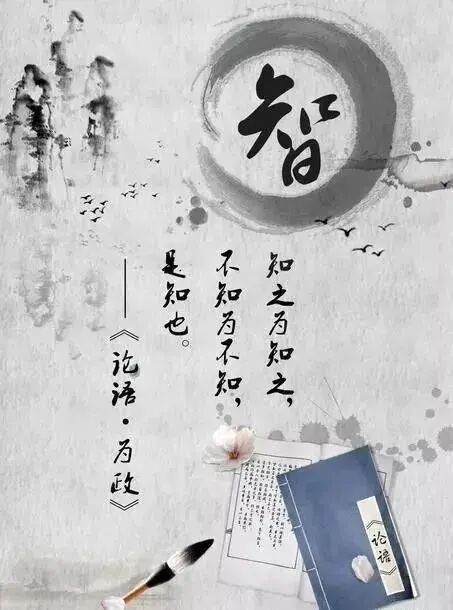 智
知之为知之，
不知为不知，
是知也。
——《论语·为政》
《论语》